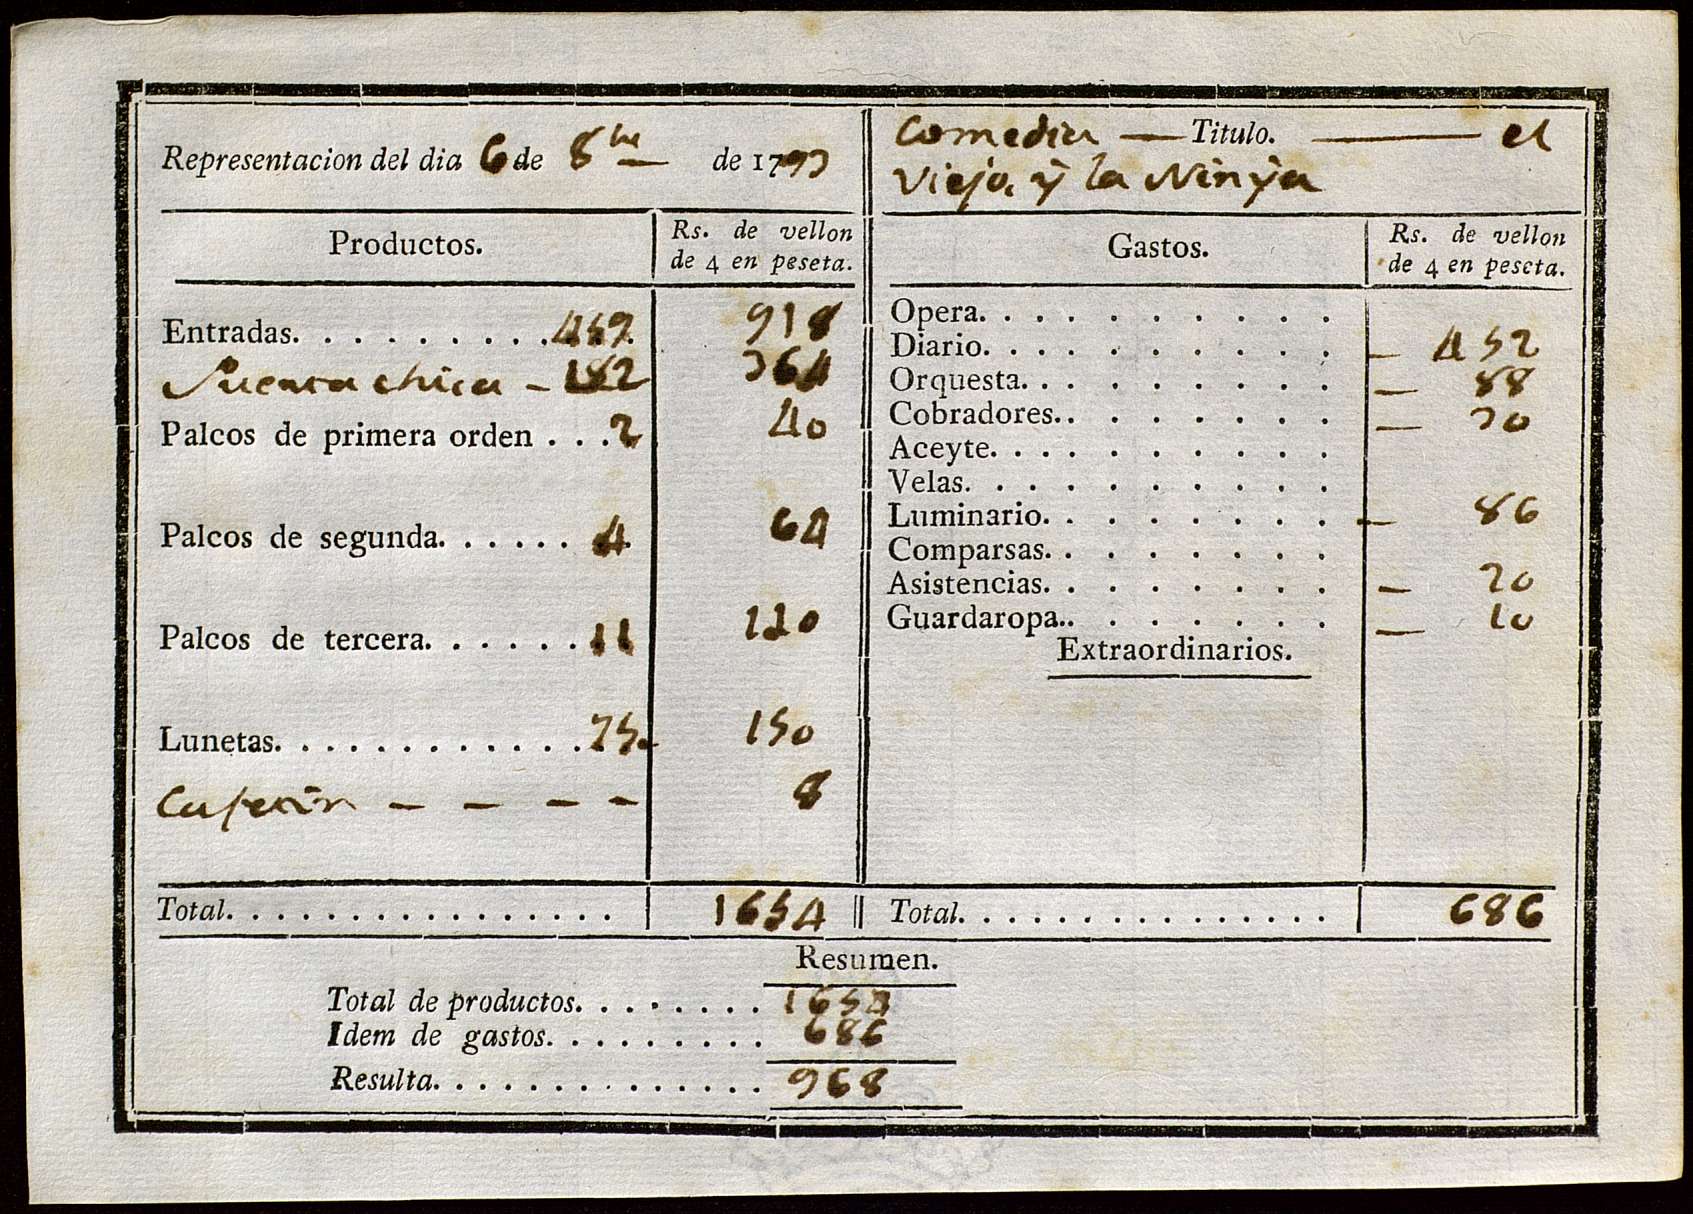 Representacion del dia 6 de 8bre de 1793
Comedia — Titulo. — el
Viejo, y la Ninya
Productos. Rs. de vellon de 4 en peseta.
Entradas. . . . . . . . . . 459. 918
Puerta chica - 182 364
Palcos de primera orden . . . 2 40
Palcos de segunda. . . . . . 4. 64
Palcos de tercera. . . . . . . 11 110
Lunetas. . . . . . . . . . . . . . 75. 150
Cafetin - - - - 8
Total. . . . . . . . . . . . . . . . 1654
Gastos. Rs. de vellon de 4 en peseta.
Opera. . . . . . . . . .
Diario. . . . . . . . . . — 452
Orquesta. . . . . . . . — 88
Cobradores.. . . . . . . — 30
Aceyte. . . . . . . . . .
Velas. . . . . . . . . .
Luminario. . . . . . . . — 86
Comparsas. . . . . . . .
Asistencias. . . . . . . . — 20
Guardaropa.. . . . . . . — 10
Extraordinarios.
Total. . . . . . . . . . . . . . . . 686
Resumen.
Total de productos. . . . . . . . 1654
Idem de gastos. . . . . . . . . . 686
Resulta. . . . . . . . . . . . . . . 968